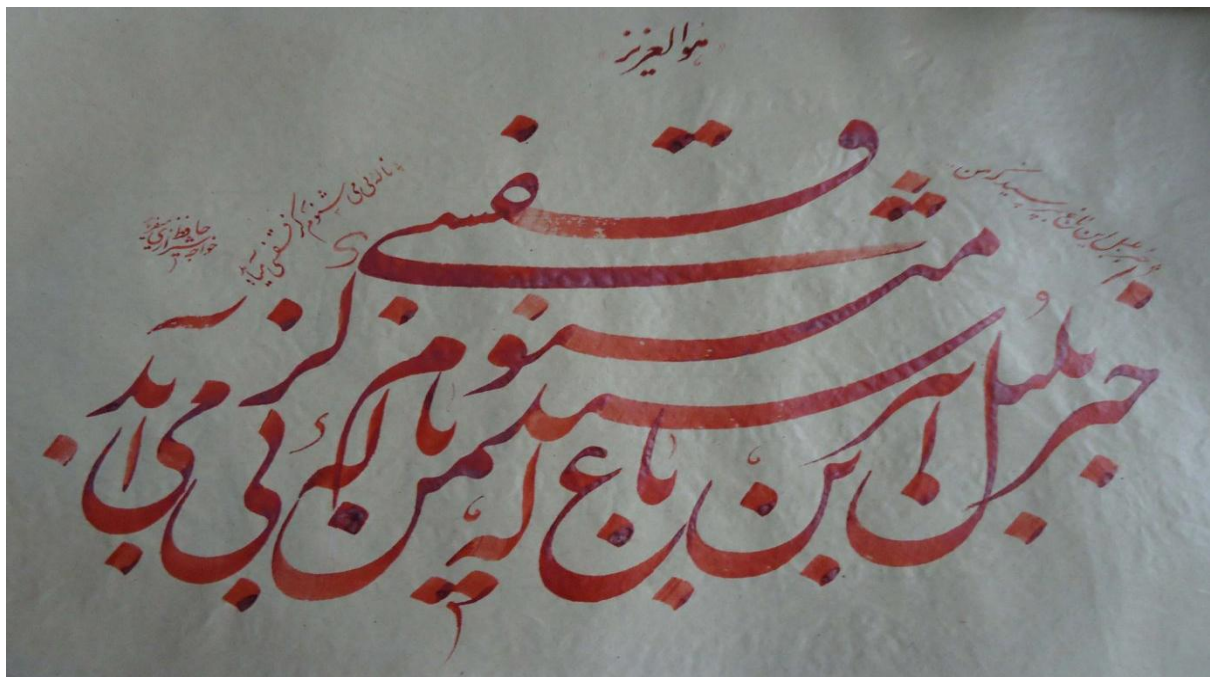 هوالعزیز
خبر بلبل این باغ بپرسید که من
ناله یی می شنوم کز قفسی میآید
خواجه حافظ شیرازی
خبر بلبل این باغ بپرسید که من
ناله ئی می شنوم کز قفسی می آید